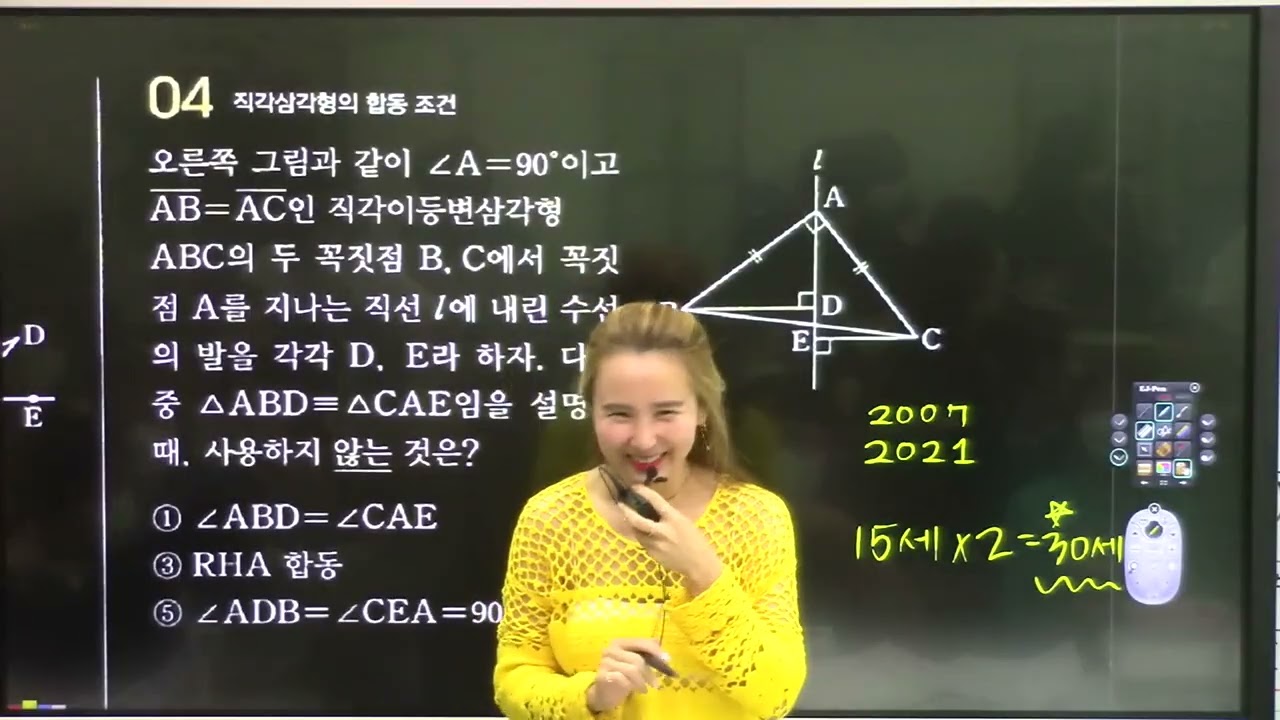 04 직각삼각형의 합동 조건
오른쪽 그림과 같이 ∠A=90°이고
AB=AC인 직각이등변삼각형
ABC의 두 꼭짓점 B, C에서 꼭짓
점 A를 지나는 직선 l에 내린 수선
의 발을 각각 D, E라 하자. 다
중 △ABD≡△CAE임을 설명
때, 사용하지 않는 것은?
① ∠ABD=∠CAE
③ RHA 합동
⑤ ∠ADB=∠CEA=90
D
E
l
A
D
E
C
2007
2021
15세×2=30세
EJ-Pen